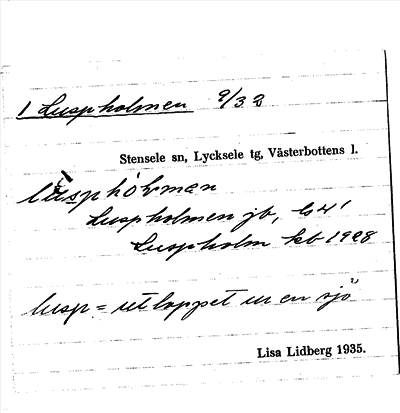 1 Luspholmen 9/3 2
Stensele sn, Lycksele tg, Västerbottens l.
Luspholmen jb,
Luspholm kb 1928
lusp = utloppet ur en sjö
Lisa Lidberg 1935.